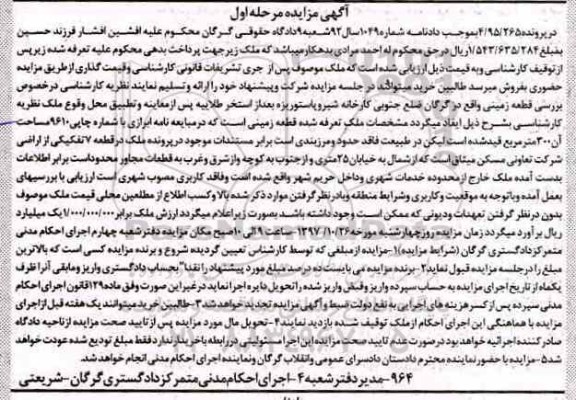 آگهی مزایده مرحله اول
در پرونده ۴/۹۵/۲۶۵ بموجب دادنامه شماره ۱۰۴۹ سال ۹۲ شعبه ۹ دادگاه حقوقی گرگان محکوم علیه افشین افشار فرزند حسین
بمبلغ ۱/۵۴۳/۶۳۵/۲۸۴ ریال در حق محکوم له احمد مرادی بدهکار میباشد که ملک زیر جهت پرداخت بدهی محکوم علیه تعرفه شده زیر پس
از توقیف کارشناسی و به قیمت ذیل ارزیابی شده است که ملک موصوف پس از جری تشریفات قانونی کارشناسی و قیمت گذاری از طریق مزایده
حضوری بفروش میرسد طالبین خرید میتوانند در جلسه مزایده شرکت و پیشنهاد خود را ارائه و تسلیم نمایند نظریه کارشناسی در خصوص
بررسی قطعه زمینی واقع در گرگان ضلع جنوبی کارخانه شیر و پاستوریزه بعد از استخر طلاییه پس از معاینه و تطبیق محل وقوع ملک نظریه
کارشناسی بشرح ذیل ایفاد میگردد مشخصات ملک تعرفه شده قطعه زمینی است که در مبایعه نامه ابرازی با شماره چاپی ۹۶۱۰ مساحت
آن ۳۰۰ متر مربع قید شده است لیکن در طبیعت فاقد حدود و مرزبندی است برابر مستندات موجود در پرونده ملک در قطعه ۷ تفکیکی از اراضی
شرکت تعاونی مسکن میثاق است که از شمال به خیابان ۲۵ متری و از جنوب به کوچه و از شرق و غرب به قطعات مجاور محدود است برابر اطلاعات
بدست آمده ملک خارج از محدوده خدمات شهری و داخل حریم شهر واقع شده است و فاقد کاربری مصوب شهری است ارزیابی با بررسیهای
بعمل آمده و باتوجه به موقعیت و کاربری و شرایط منطقه و با در نظر گرفتن موارد ذکر شده بالا و کسب اطلاع از مطلعین محلی قیمت ملک موصوف
بدون در نظر گرفتن تعهدات و دیونی که ممکن است وجود داشته باشد بصورت زیر اعلام میگردد ارزش ملک برابر ۱/۰۰۰/۰۰۰/۰۰۰ یک میلیارد
ریال بر آورد میگردد زمان مزایده روز چهارشنبه مورخه ۱۳۹۷/۱۰/۲۶ - ساعت ۹ الی ۱۰ صبح مکان مزایده دفتر شعبه چهارم اجرای احکام مدنی
متمرکز دادگستری گرگان (شرایط مزایده) ۱- مزایده از مبلغی که توسط کارشناس تعیین گردیده شروع و برنده مزایده کسی است که بالاترین
مبلغ را در جلسه مزایده قبول نماید ۲- برنده مزایده می بایست ده درصد مبلغ مورد پیشنهاد را نقدا" بحساب دادگستری واریز و مابقی آنرا ظرف
یکماه از تاریخ اجرای مزایده به حساب سپرده واریز و قبض واریز شده را تحویل دایره اجرا نماید در غیر این صورت وفق ماده ۱۲۹ قانون اجرای احکام
مدنی سپرده پس از کسر هزینه های اجرایی به نفع دولت ضبط و آگهی مزایده تجدید خواهد شد ۳- طالبین خرید میتوانند یک هفته قبل از اجرای
مزایده با هماهنگی این اجرای احکام از ملک توقیف شده بازدید نمایند ۴- تحویل مال مورد مزایده پس از تایید صحت مزایده از ناحیه دادگاه
صادر کننده اجرائیه خواهد بود در صورت عدم تایید صحت مزایده این اجرا مسئولیتی در رابطه با خریدار ندارد فقط مبلغ تودیع شده عودت خواهد
شد ۵- مزایده با حضور نماینده محترم دادستان دادسرای عمومی و انقلاب گرگان و نماینده اجرای احکام مدنی انجام خواهد شد.
۹۶۴- مدیر دفتر شعبه ۴- اجرای احکام مدنی متمرکز دادگستری گرگان - شریعتی